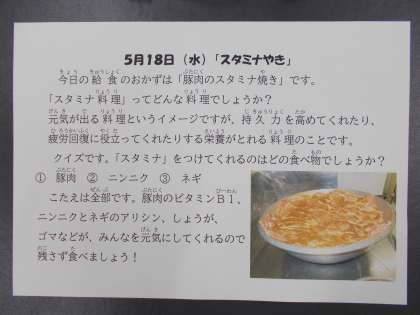 5月18日（水）「スタミナやき」
今日の給食のおかずは「豚肉のスタミナ焼き」です。
「スタミナ料理」ってどんな料理でしょうか？
元気が出る料理というイメージですが、持久力を高めてくれたり、
疲労回復に役立ってくれたりする栄養がとれる料理のことです。
クイズです。「スタミナ」をつけてくれるのはどの食べ物でしょうか？
① 豚肉　② ニンニク　③ ネギ
こたえは全部です。豚肉のビタミンＢ１、
ニンニクとネギのアリシン、しょうが、
ゴマなどが、みんなを元気にしてくれるので
残さず食べましょう！